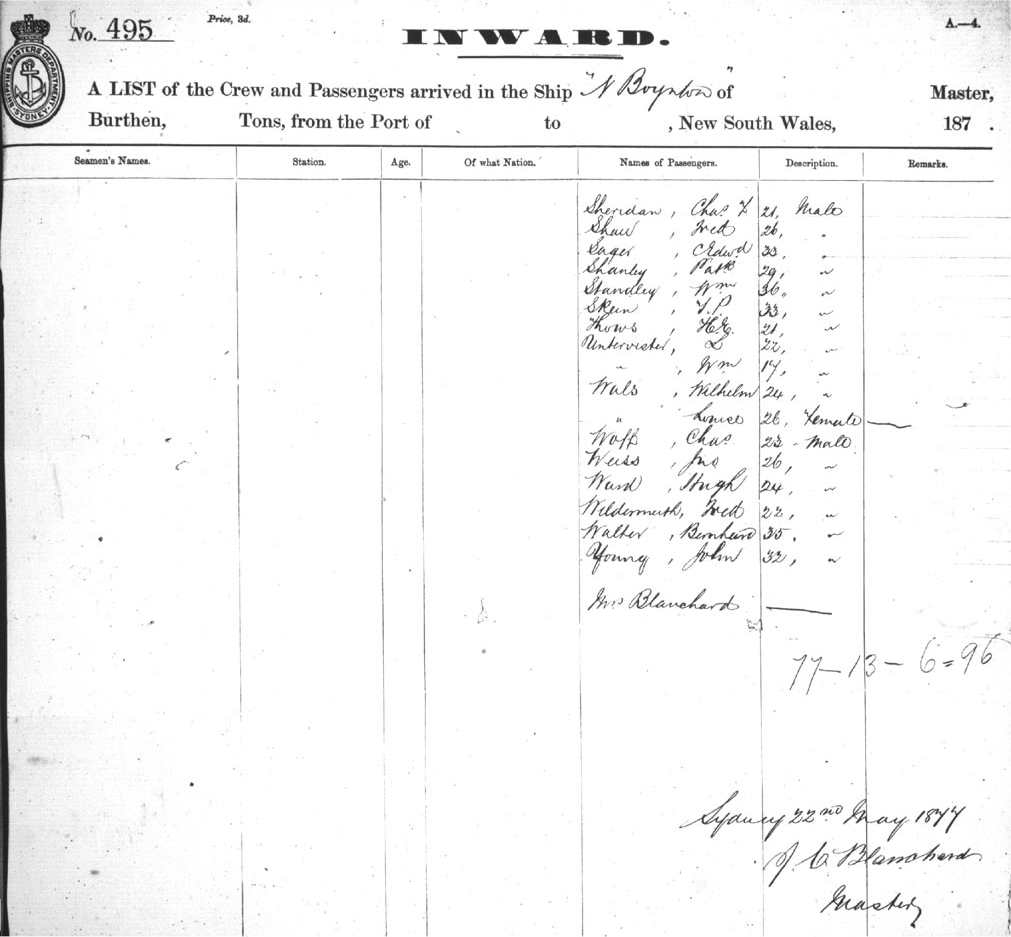 No. 495
Price, 3d.
A.—4.
SHIPPING MASTERS DEPARTMENT SYDNEY
INWARD.
A LIST of the Crew and Passengers arrived in the Ship "N Boynton" of Master,
Burthen, Tons, from the Port of to , New South Wales, 187 .
Seamen's Names. Station. Age. Of what Nation. Names of Passengers. Description. Remarks.
Sheridan, Chas F 21, Male
Shaw, Fred 26, "
Sager, Edwd 33, "
Shanley, Patk 29, "
Standley, Wm 36, "
Skein, T.P 33, "
Thows, H.G. 21, "
Untervister, L 22, "
" , Wm 17, "
Wals, Wilhelm 24, "
" Louise 26, Female
Woff, Chas 23 - Male
Weiss, Jno 26, "
Ward, Hugh 24, "
Wildermuth, Fred 22, "
Walter, Bernhard 35, "
Young, John 32, "
Mrs Blanchard
77-13-6=96
Sydney 22nd May 1877
J. C. Blanchard
Master